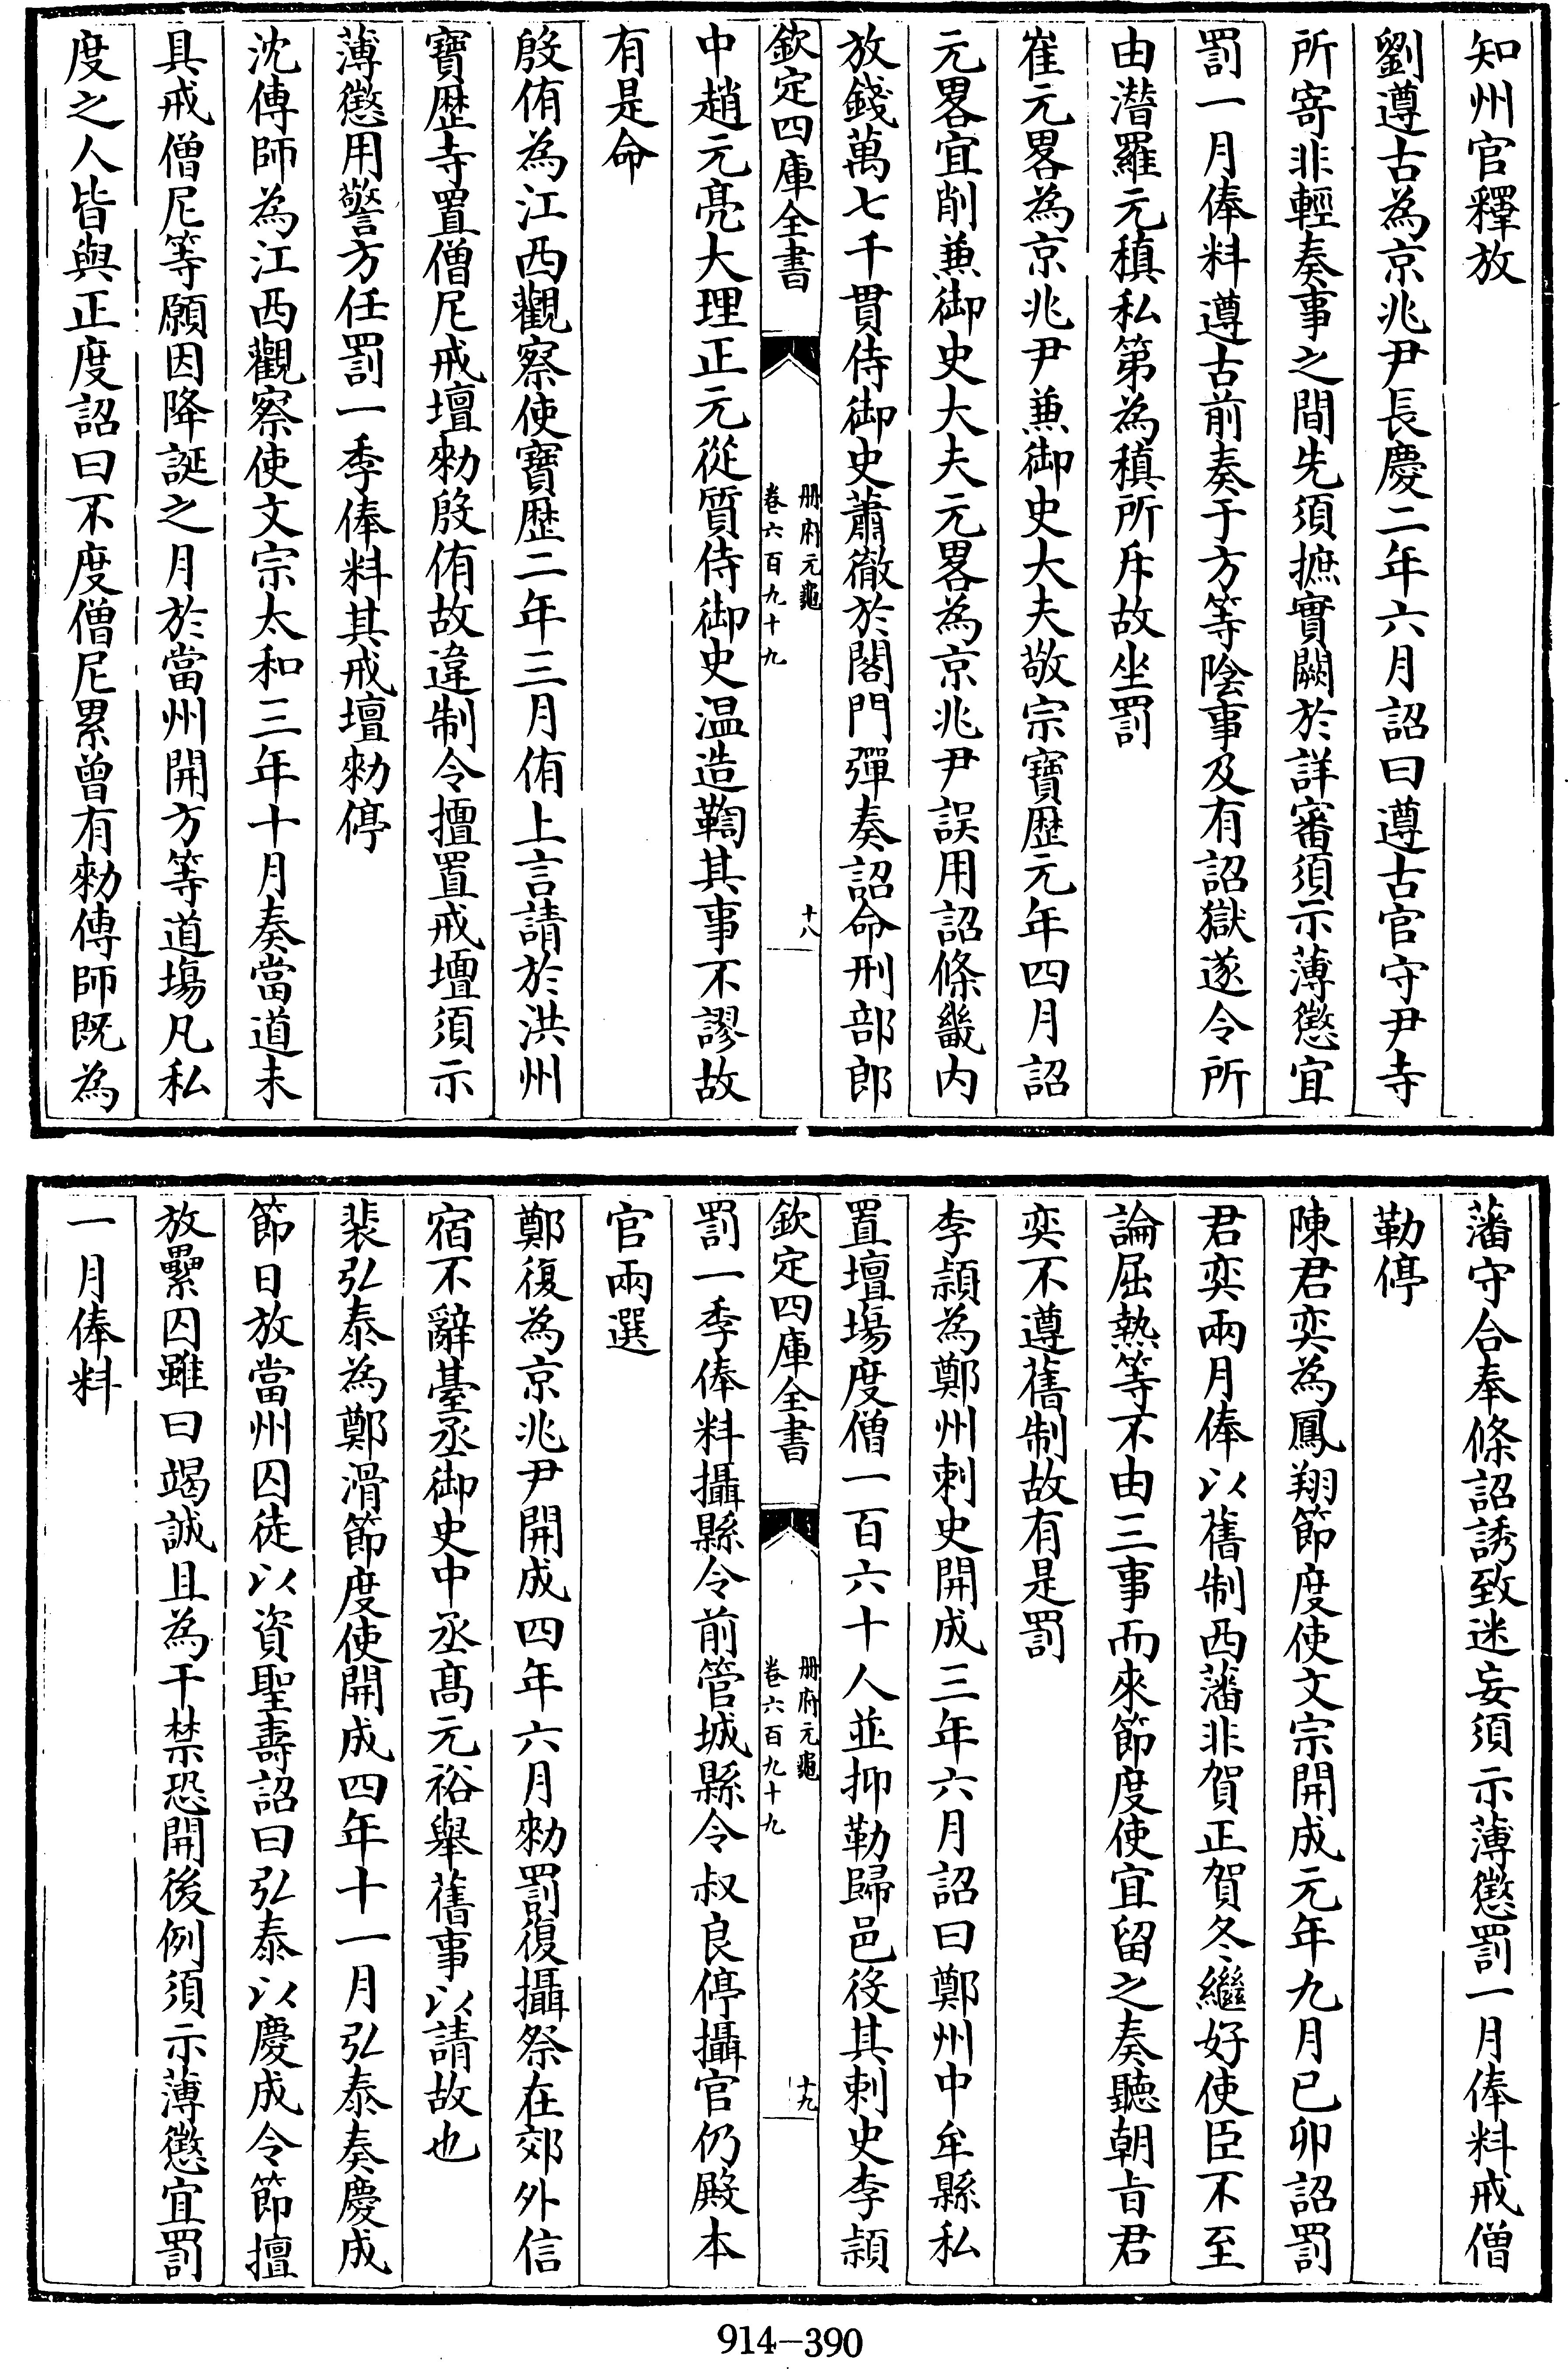 知州官釋放
劉遵古為京兆尹長慶二年六月詔曰遵古官守尹寺
所寄非輕奏事之間先須摭實闕於詳審須示薄懲宜
罰一月俸料遵古前奏于方等陰事及有詔獄遂令所
由潛羅元稹私第為稹所斥故坐罰
崔元畧為京兆尹兼御史大夫敬宗寶歷元年四月詔
元畧宜削兼御史大夫元畧為京兆尹誤用詔條畿内
放錢萬七千貫侍御史蕭徹於閤門彈奏詔命刑部郎
欽定四庫全書
冊府元龜
卷六百九十九
十八
中趙元亮大理正元從質侍御史温造鞫其事不謬故
有是命
殷侑為江西觀察使寶歷二年三月侑上言請於洪州
寶歷寺置僧尼戒壇勑殷侑故違制令擅置戒壇須示
薄懲用警方任罰一季俸料其戒壇勑停
沈傳師為江西觀察使文宗太和三年十月奏當道未
具戒僧尼等願因降誕之月於當州開方等道場凡私
度之人皆與正度詔曰不度僧尼累曾有勑傳師既為
藩守合奉條詔誘致迷妄須示薄懲罰一月俸料戒僧
勒停
陳君奕為鳳翔節度使文宗開成元年九月已卯詔罰
君奕兩月俸以舊制西藩非賀正賀冬繼好使臣不至
論屈熱等不由三事而來節度使宜留之奏聽朝旨君
奕不遵舊制故有是罰
李頴為鄭州刺史開成三年六月詔曰鄭州中牟縣私
置壇場度僧一百六十人並抑勒歸邑役其刺史李頴
欽定四庫全書
冊府元龜
卷六百九十九
十九
罰一季俸料攝縣令前管城縣令叔良停攝官仍殿本
官兩選
鄭復為京兆尹開成四年六月勑罰復攝祭在郊外信
宿不辭臺丞御史中丞髙元裕舉舊事以請故也
裴弘泰為鄭滑節度使開成四年十一月弘泰奏慶成
節日放當州囚徒以資聖壽詔曰弘泰以慶成令節擅
放纍囚雖曰竭誠且為干禁恐開後例須示薄懲宜罰
一月俸料
914-390